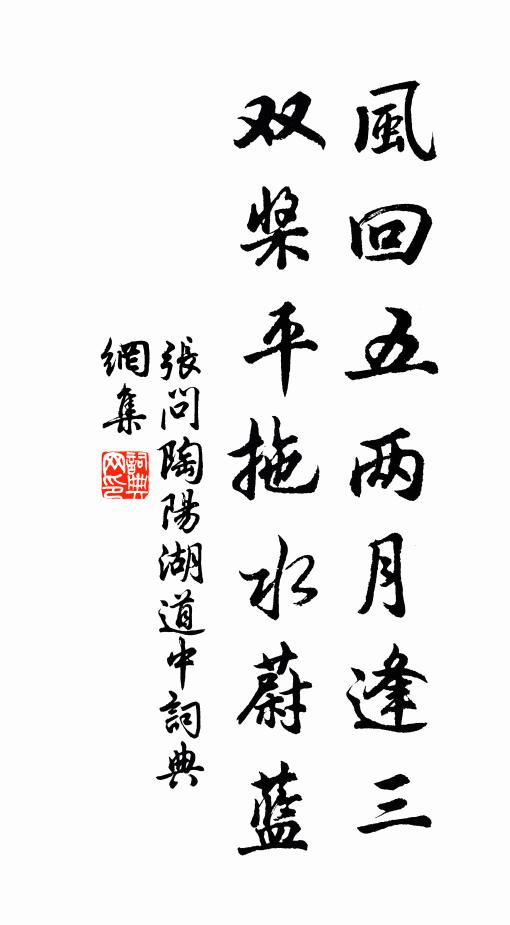 風回五两月逢三
双桨平拖水蔚藍
張問陶陽湖道中詞典
網集
詞典网印